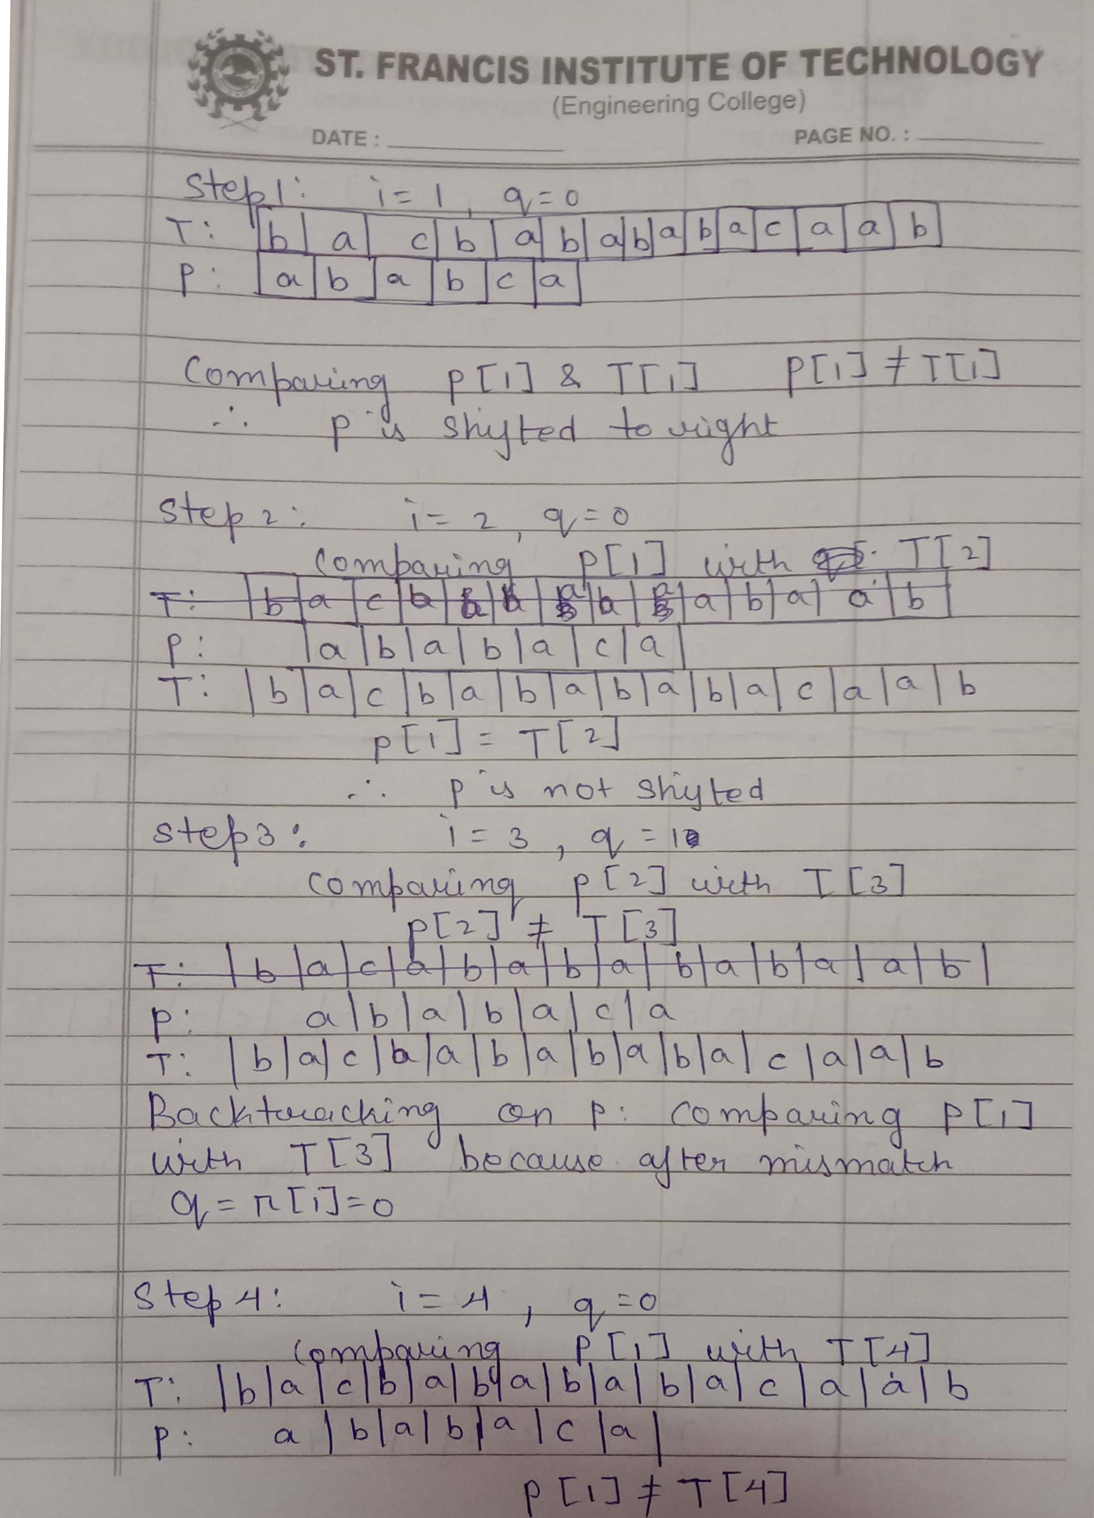 ST. FRANCIS INSTITUTE OF TECHNOLOGY
(Engineering College)
DATE : PAGE NO. :
Step1: i= 1, q=0
T: |b|a| c|b|a|b|a|b|a|b|a|c|a|a|b|
P: |a|b|a|b|c|a|
Comparing P[1] & T[1] P[1] ≠ T[1]
∴ P is shifted to right
Step 2: i= 2, q=0
Comparing P[1] with T[2]
P: |a|b|a|b|a|c|a|
T: |b|a|c|b|a|b|a|b|a|b|a|c|a|a|b
P[1] = T[2]
∴ P is not shifted
Step3: i=3, q=1
Comparing P[2] with T[3]
P[2] ≠ T[3]
T: |b|a|c|a|b|a|b|a|b|a|b|a|a|b|
P: a|b|a|b|a|c|a
T: |b|a|c|b|a|b|a|b|a|b|a|c|a|a|b
Backtracking on P: comparing P[1]
with T[3] because after mismatch
q=π[1]=0
Step 4: i=4, q=0
Comparing P[1] with T[4]
T: |b|a|c|b|a|b|a|b|a|b|a|c|a|a|b
P: a|b|a|b|a|c|a|
P[1] ≠ T[4]